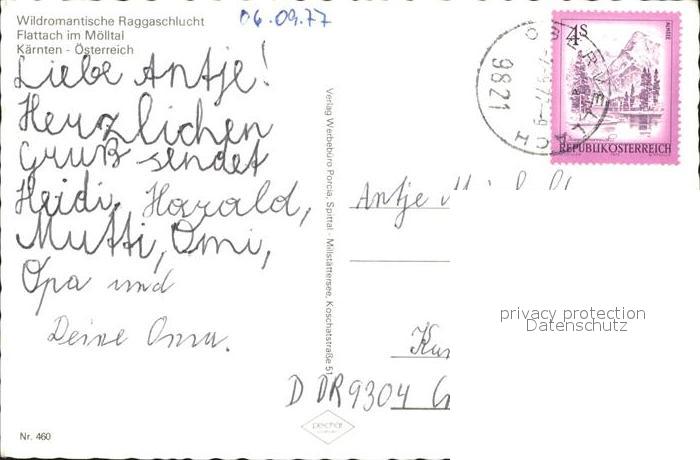 Wildromantische Raggaschlucht
Flattach im Mölltal
Kärnten - Österreich
06.09.77
Liebe Antje!
Herzlichen
Gruß sendet
Heidi, Harald,
Mutti, Omi,
Opa und
Deine Oma.
Nr. 460
Verlag Werbebüro Porcia, Spittal - Millstättersee, Koschatstraße 51
4S
ALMSEE
REPUBLIK ÖSTERREICH
OBERVELLACH
9821
Antje
DDR 9304
privacy protection
Datenschutz